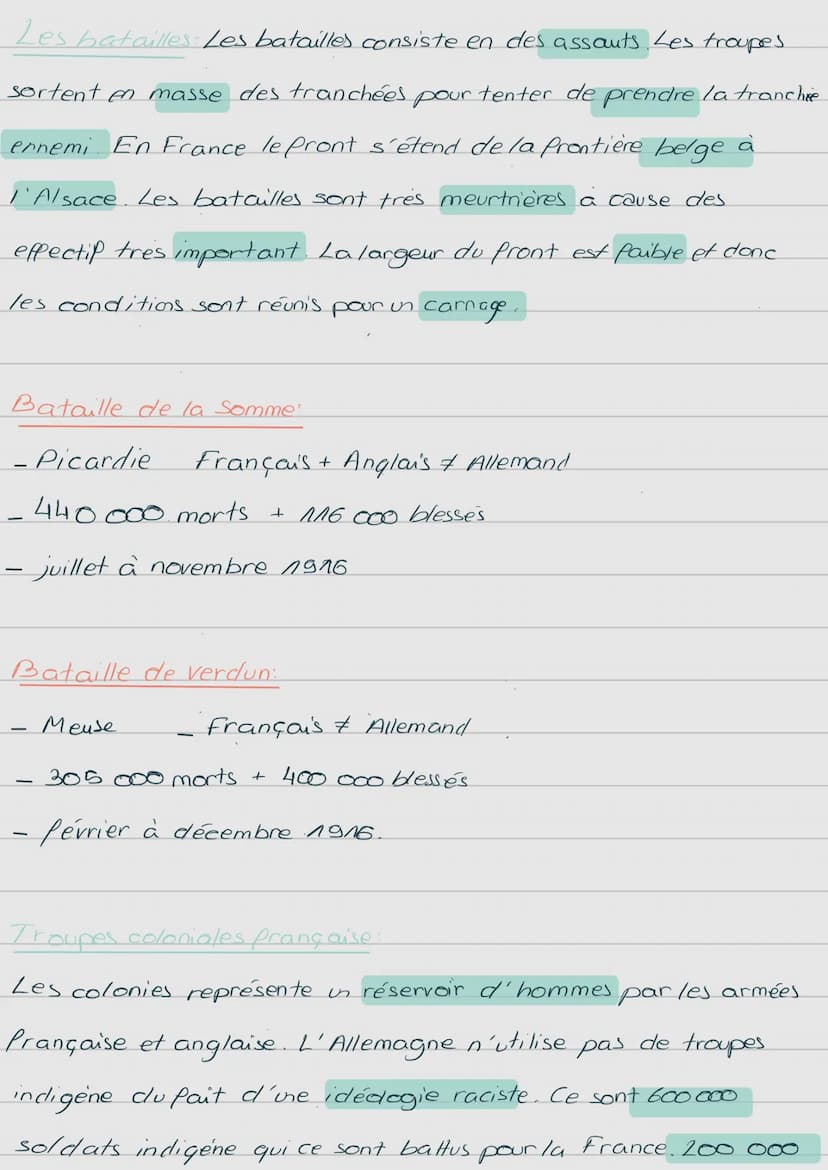 Les batailles: Les batailles consiste en des assauts. Les troupes
sortent en masse des tranchées pour tenter de prendre la tranchée
ennemi. En France le front s'étend de la frontière belge à
l'Alsace. Les batailles sont très meurtrières à cause des
effectif très important. La largeur du front est faible et donc
les conditions sont réunis pour un carnage.
Bataille de la Somme:
- Picardie Français + Anglais ≠ Allemand
- 440 000 morts + 116 000 blessés
- juillet à novembre 1916
Bataille de verdun:
- Meuse - Français ≠ Allemand
- 305 000 morts + 400 000 blessés
- février à décembre 1916.
Troupes coloniales française:
Les colonies représente un réservoir d'hommes par les armées
française et anglaise. L'Allemagne n'utilise pas de troupes
indigène du fait d'une idéologie raciste. Ce sont 600 000
soldats indigène qui ce sont battus pour la France. 200 000